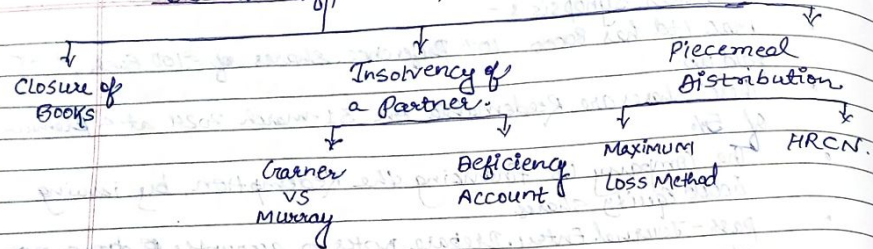 Closure of
Books
Insolvency of
a Partner.
Piecemeal
Distribution
Garner
vs
Murray
Deficiency
Account
Maximum
Loss Method
HRCN.